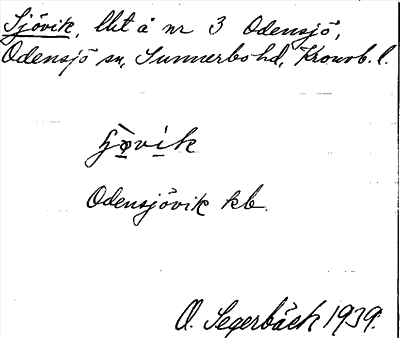 Sjövik, lht å nr 3 Odensjö,
Odensjö sn, Sunnerbo hd, Kronob. l.
Odensjövik kb.
O. Segerbäck 1939.